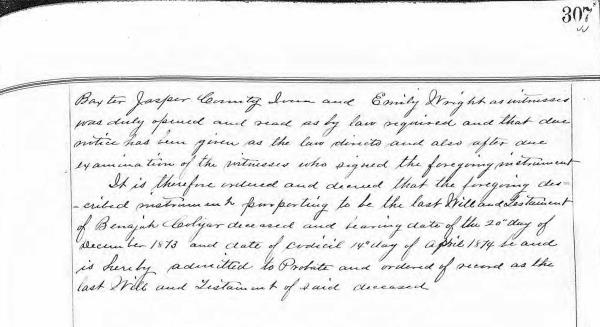 307
Baxter Jasper County Iowa and Emily Wright as witnesses
was duly opened and read as by law required and that due
notice has been given as the law directs and also after due
examination of the witnesses who signed the foregoing instrument
It is therefore ordered and decreed that the foregoing des=
-cribed instrument porporting to be the last Will and Testament
of Benajah Colyar deceased and bearing date of the 20" day of
December 1873 and date of codicil 14" day of April 1874 be and
is hereby admitted to Probate and ordered of record as the
last Will and Testament of said deceased